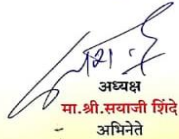 अध्यक्ष
मा.श्री.सयाजी शिंदे
- अभिनेते